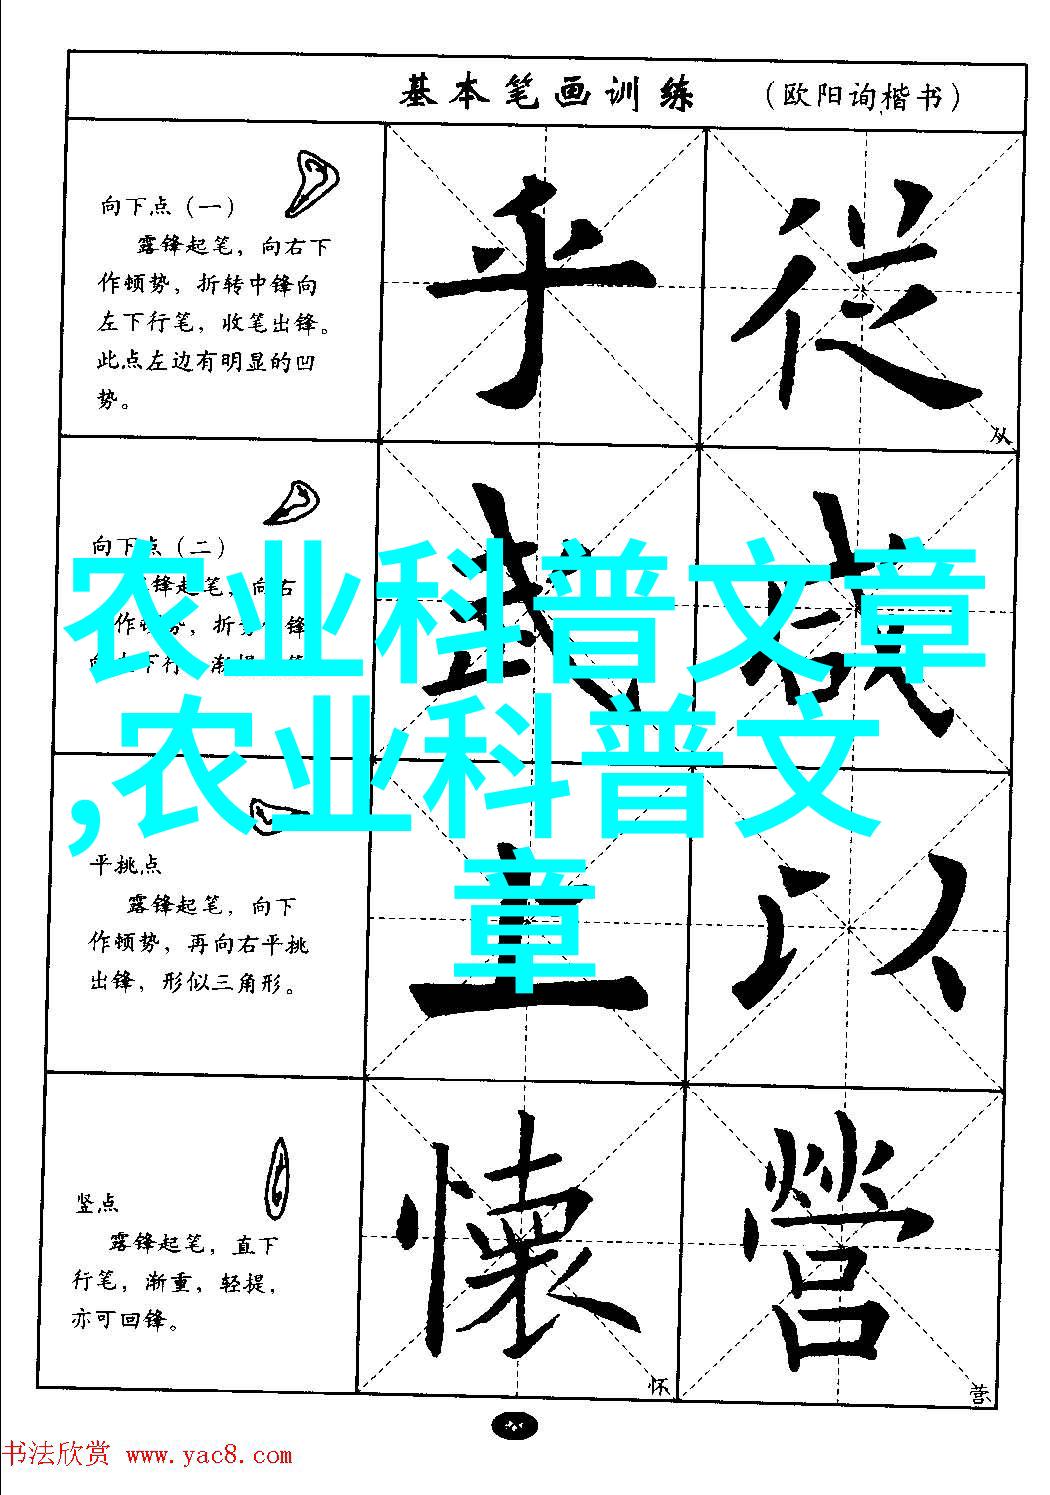 基本笔画训练 （欧阳询楷书）
向下点（一）
露锋起笔，向右下
作顿势，折转中锋向
左下行笔，收笔出锋。
此点左边有明显的凹
势。
乎
從
从
向下点（二）
锋起笔，向右
作顿势，折
锋
下行
农业科普文章
,农业科普文
章
平挑点
露锋起笔，向下
作顿势，再向右平挑
出锋，形似三角形。
以
竖点
露锋起笔，直下
行笔，渐重，轻提，
亦可回锋。
懷
怀
營
营
书法欣赏 www.yac8.com